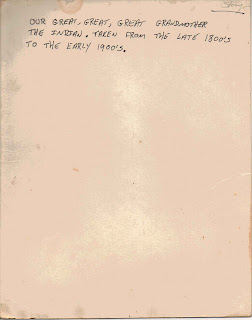 OUR GREAT, GREAT, GREAT GRANDMOTHER
THE INDIAN. TAKEN FROM THE LATE 1800'S
TO THE EARLY 1900'S.